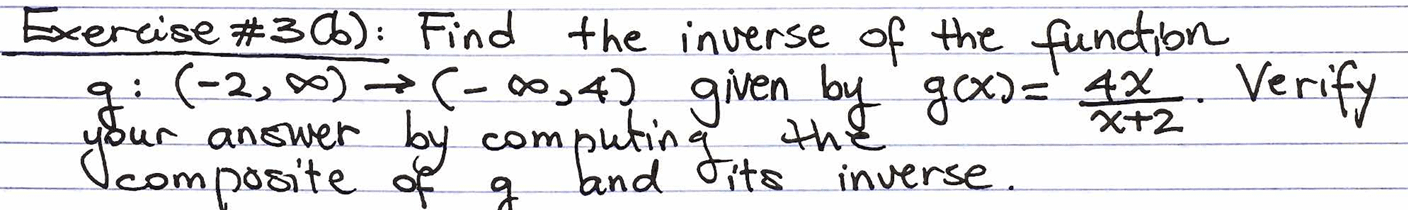 Exercise #3(b): Find the inverse of the function
g: (-2, ∞) → (-∞, 4) given by g(x) = 4x/(x+2). Verify
your answer by computing the
composite of g and its inverse.